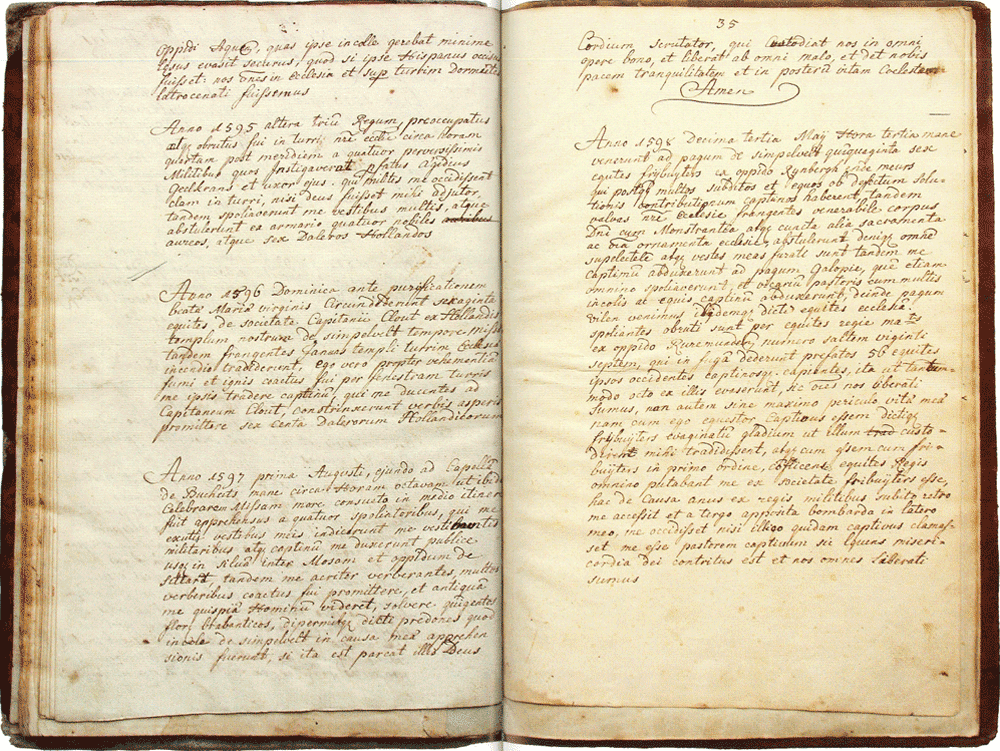 oppidi Aquen, quas ipse incolle gerebat minime
lesus evasit securus, quod si ipse Hispanus occisus
fuisset: nos omes in Ecclesia et sup turrim Dormientes
latrocenati fuissemus
Anno 1595 altera triu Regum, preoccupatus
atq obrutus fui in turri nre eccle circa horam
quartam post meridiem a quatuor perversissimis
Militibus quos instigaverat pfatus Agidius
Geilkrans et uxor ejus. qui milites me occidissent
clam in turri, nisi deus fuisset mihi adjutor,
tandem spoliaverunt me vestibus multis, atque
abstulerunt ex armario quatuor nobiles auribus
aureos, atque sex Daleros Hollandos
Anno 1596 Dominica ante purificationem
beatæ Mariæ virginis Circumdederunt sexaginta
equites de societate Capitanie Clout ex Hollandis
templum nostrum de simpelvelt tempore missæ
tandem frangentes Januas templi turrim Ecclesiæ
incendio tradiderunt, ego vero propter vehementiã
fumi et ignis coactus fui per fenestram turris
me ipsis tradere captinũ, qui me ducentes ad
Capitaneum Clout, constrinxerunt verbis asperis
promittere sex Centa Dalerorum Hollandicorum
Anno 1597 prima Augusti, eundo ad Capellã
de Bucheits mane circa Horam octavam ut ibidẽ
Celebrarem Missam more consueto in medio itinere
fuit apprehensus a quatuor spoliatoribus, qui me
exutũ vestibus meis induerunt me vestibus
militaribus atq captinũ me duxerunt publice
usq in Silvã inter Mosam et oppidum de
Sittart tandem me acriter verberantes, multis
verberibus coactus fui promittere, et antiquã
me quispiã Hominũ videret, solvere quigentos
flor: brabanticos, dipermisq dicti predones quod
incole de simpelvelt in causa meæ apprehen
sionis fuerunt, si ita est parcat illis Deus
35
Cordium scrutator, qui Custodiat nos in omni
opere bono, et liberat ab omni malo, et det nobis
pacem tranquilitatem et in posterũ vitam Coelestem
Amen
Anno 1598 Decima tertia Maij Hora tertia mane
venerunt ad pagum de simpelvelt quiquaginta sex
equites frijbuijters ex oppido Rynberga unde meurs
qui postq multos subditos et equos ob defectum solu-
tionis contributionum captinos haberent, tandem
valvas nrẽ Ecclesie frangentes venerabile corpus
Dni cum Monstrantia atq cuncta alia sacramenta
ac oĩa ornamenta ecclesiæ abstulerunt deniq omnẽ
supelectilẽ atq vestes meas furati sunt tandem me
captinũ abduxerunt ad pagum Galopiæ, quẽ etiam
omnino spoliaverunt, et vicariũ pastoris cum multis
incolis ac equis captinũ abduxerunt, deinde pagum
vilen venimus ibidemq dicti equites ecclesiã
spoliantes obruti sunt per equites regie ma-tis
ex oppido Ruremuedẽ numero saltem viginti
septem, qui in fugã dederunt prefatos 56 equites
ipsos occidentes captinosq capientes, ita ut tantum-
modo octo ex illis evaserunt, hc oẽs nos liberati
Sumus, non autem sine maximo periculo vitæ meæ
nam cum ego equester Captivus essem dictiq
frijbuijters evaginatũ gladium ut illum trad custo-
dirent mihi tradidissent, atq cum essem cum fri-
buijters in primo ordine, conficens equites Regis
omnino putabant me ex societate fribuijters esse,
hac de Causa anus ex regis militibus subito retro
me accessit et a tergo apposita bombarda in latero
meo, me occidisset nisi illico quidam captivus clamas-
set me esse pastorem captivum sic equens miseri-
cordia dei contritus est et nos omnes Liberati
sumus